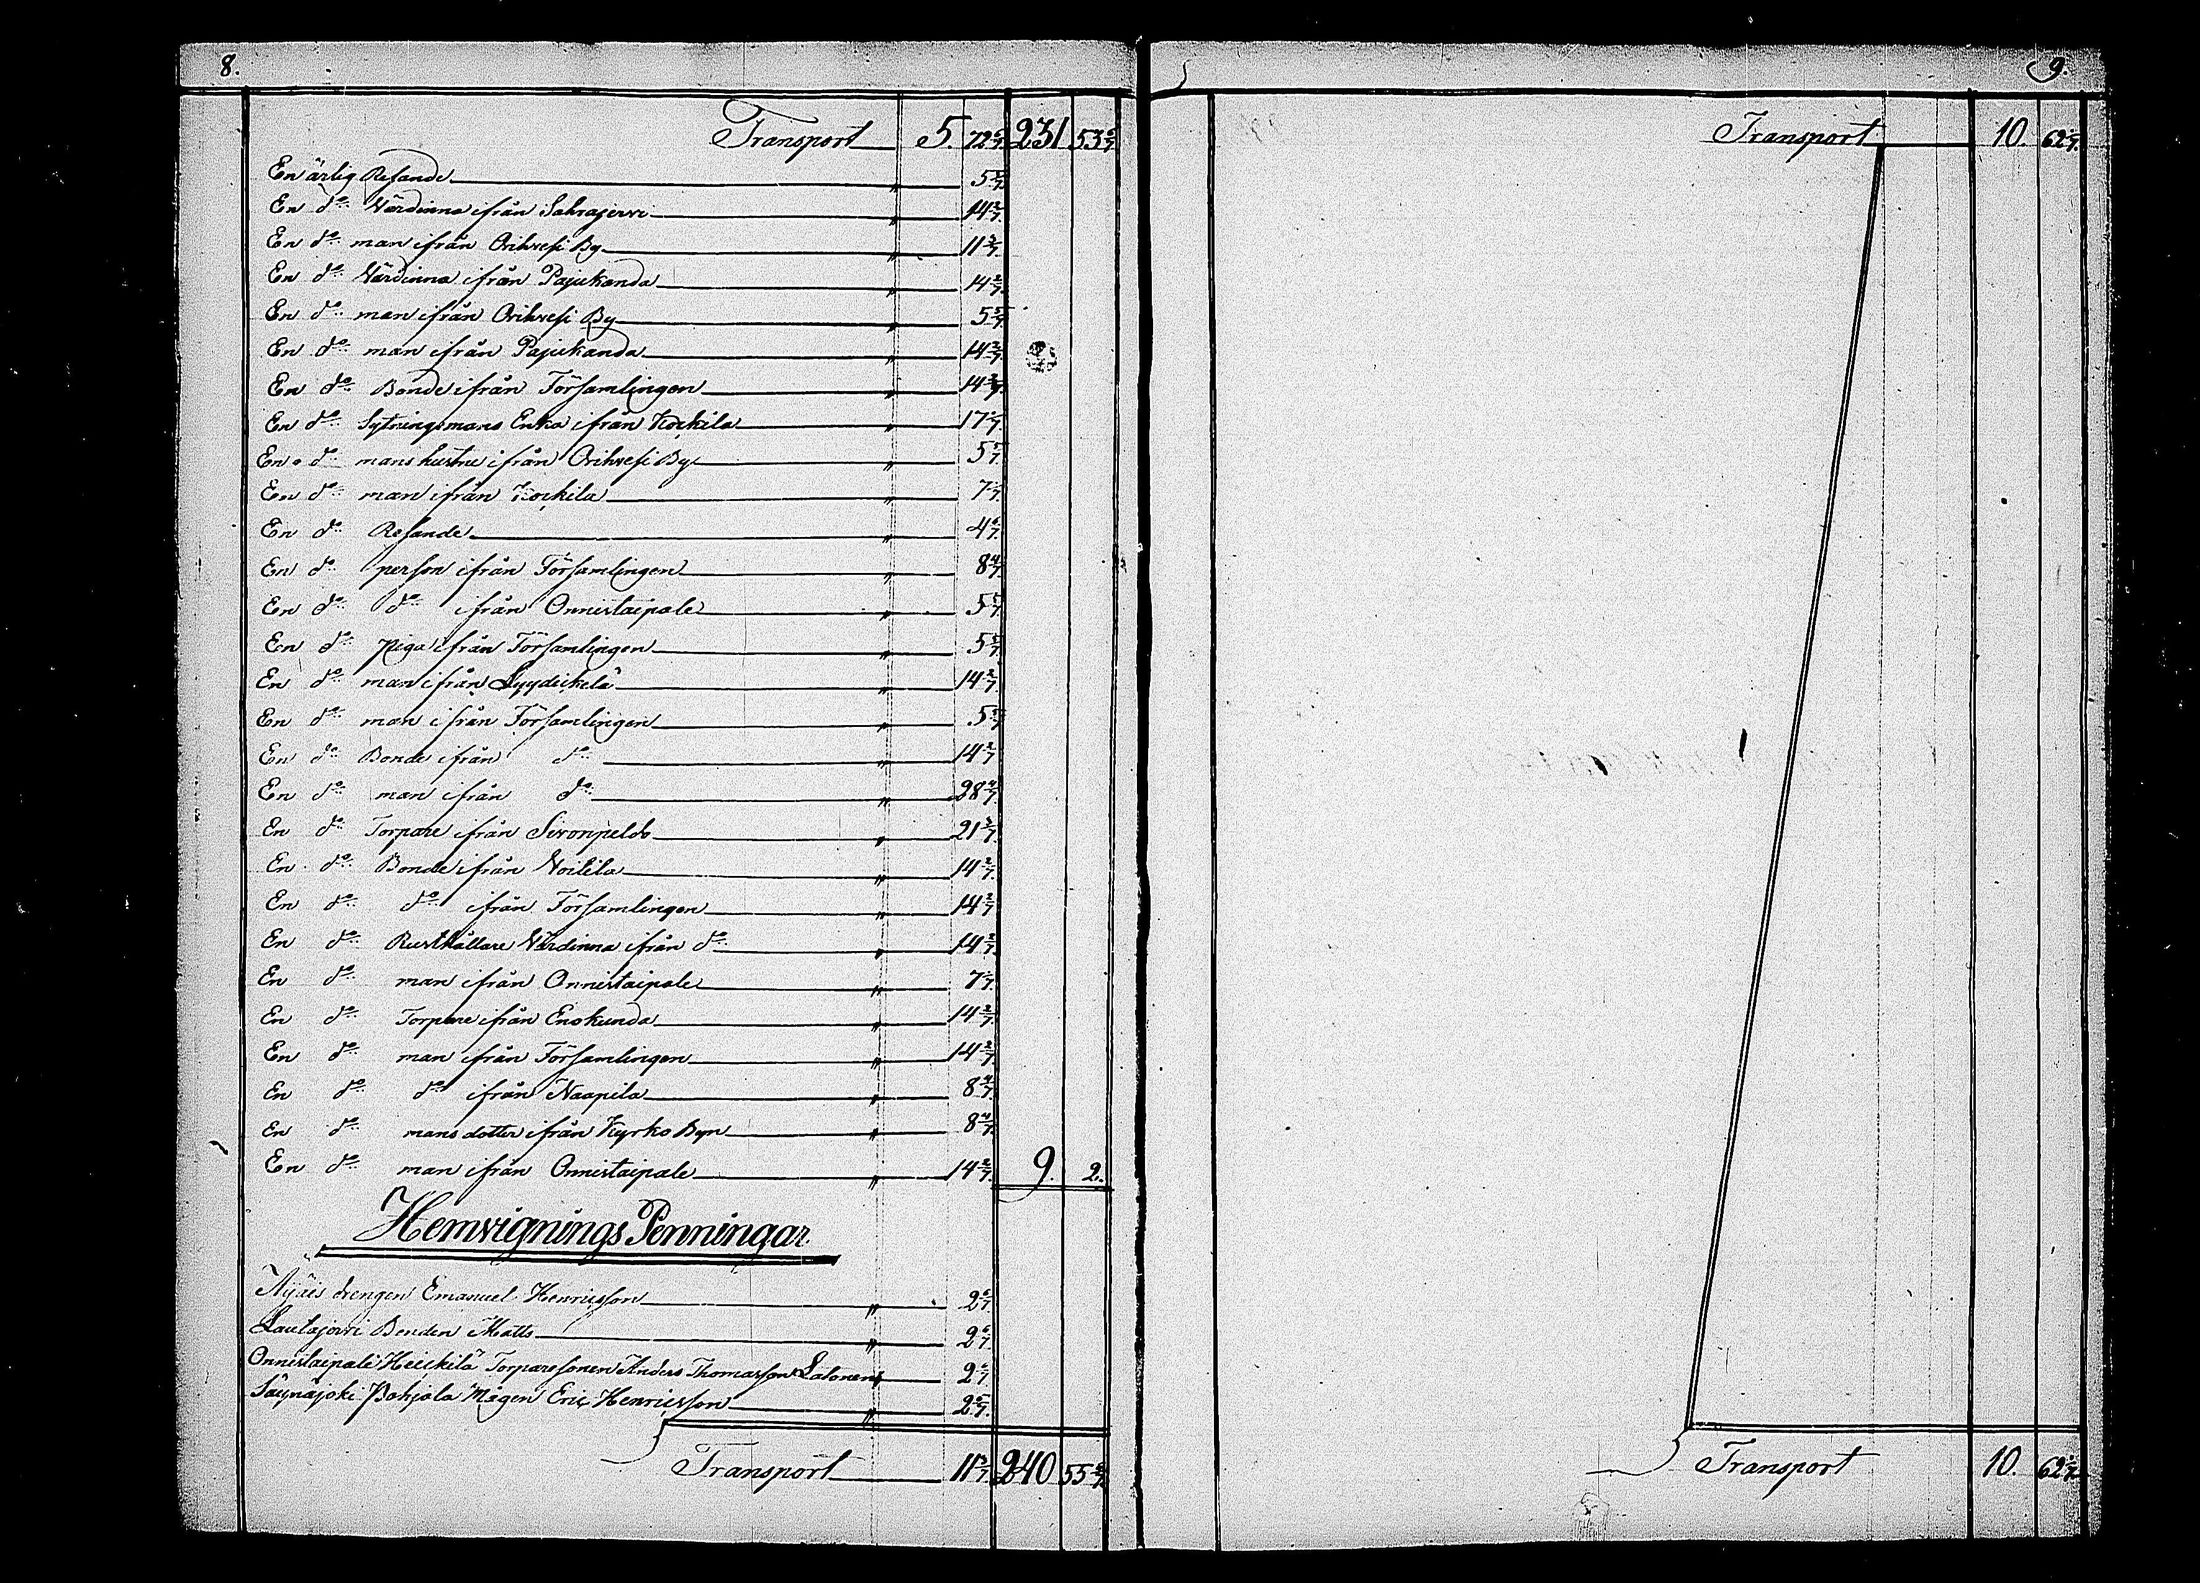 8.
Transport 5. 72 6/7. 231 53 6/7
En ärlig Resande " 5 5/7
En do Värdinna ifrån Sahrajervi " 14 2/7.
En do man ifrån Orihvesi By " 11 3/7.
En do Värdinna ifrån Pajukanda " 14 2/7.
En do man ifrån Orihvesi By " 5 5/7
En do man ifrån Pajukanda " 14 2/7.
En do Bonde ifrån Församlingen " 14 2/7.
En do Sytningsmans Enka ifrån Kockila " 17 1/7.
En do manshustru ifrån Orihvesi By " 5 5/7.
En do man ifrån Kockila " 7 1/7.
En do Resande " 4 6/7.
En do person ifrån Församlingen " 8 4/7.
En do do ifrån Onnistaipale " 5 5/7.
En do piga ifrån Församlingen " 5 5/7.
En do man ifrån Lyydickilä " 14 2/7.
En do man ifrån Församlingen " 5 5/7
En do Bonde ifrån do " 14 2/7
En do man ifrån do " 28 4/7.
En do Torpare ifrån Sivonpeldo " 21 3/7.
En do Bonde ifrån Voitila " 14 2/7.
En do do ifrån Församlingen " 14 2/7
En do Rusthållare Värdinna ifrån do " 14 2/7.
En do man ifrån Onnistaipale " 7 1/7.
En do Torpare ifrån Enokunda " 14 2/7.
En do man ifrån Församlingen " 14 2/7
En do do ifrån Naapila " 8 4/7.
En do mans dotter ifrån Kyrko Byn " 8 4/7.
En do man ifrån Onnistaipale " 14 2/7. 9. 2.
Hemvignings Penningar
drengen Emanuel Henricsson " 2 6/7.
Lautajovri Bonden Matts " 2 6/7.
Onnistaipale Heickilä Torparesonen Anders Thomasson Salonen " 2 6/7
Säynäjoki Pohjola Mågen Eric Henricsson " 2 6/7.
Transport 11 3/7 240 55 6/7
9.
Transport 10. 62 6/7.
Transport 10. 62 6/7